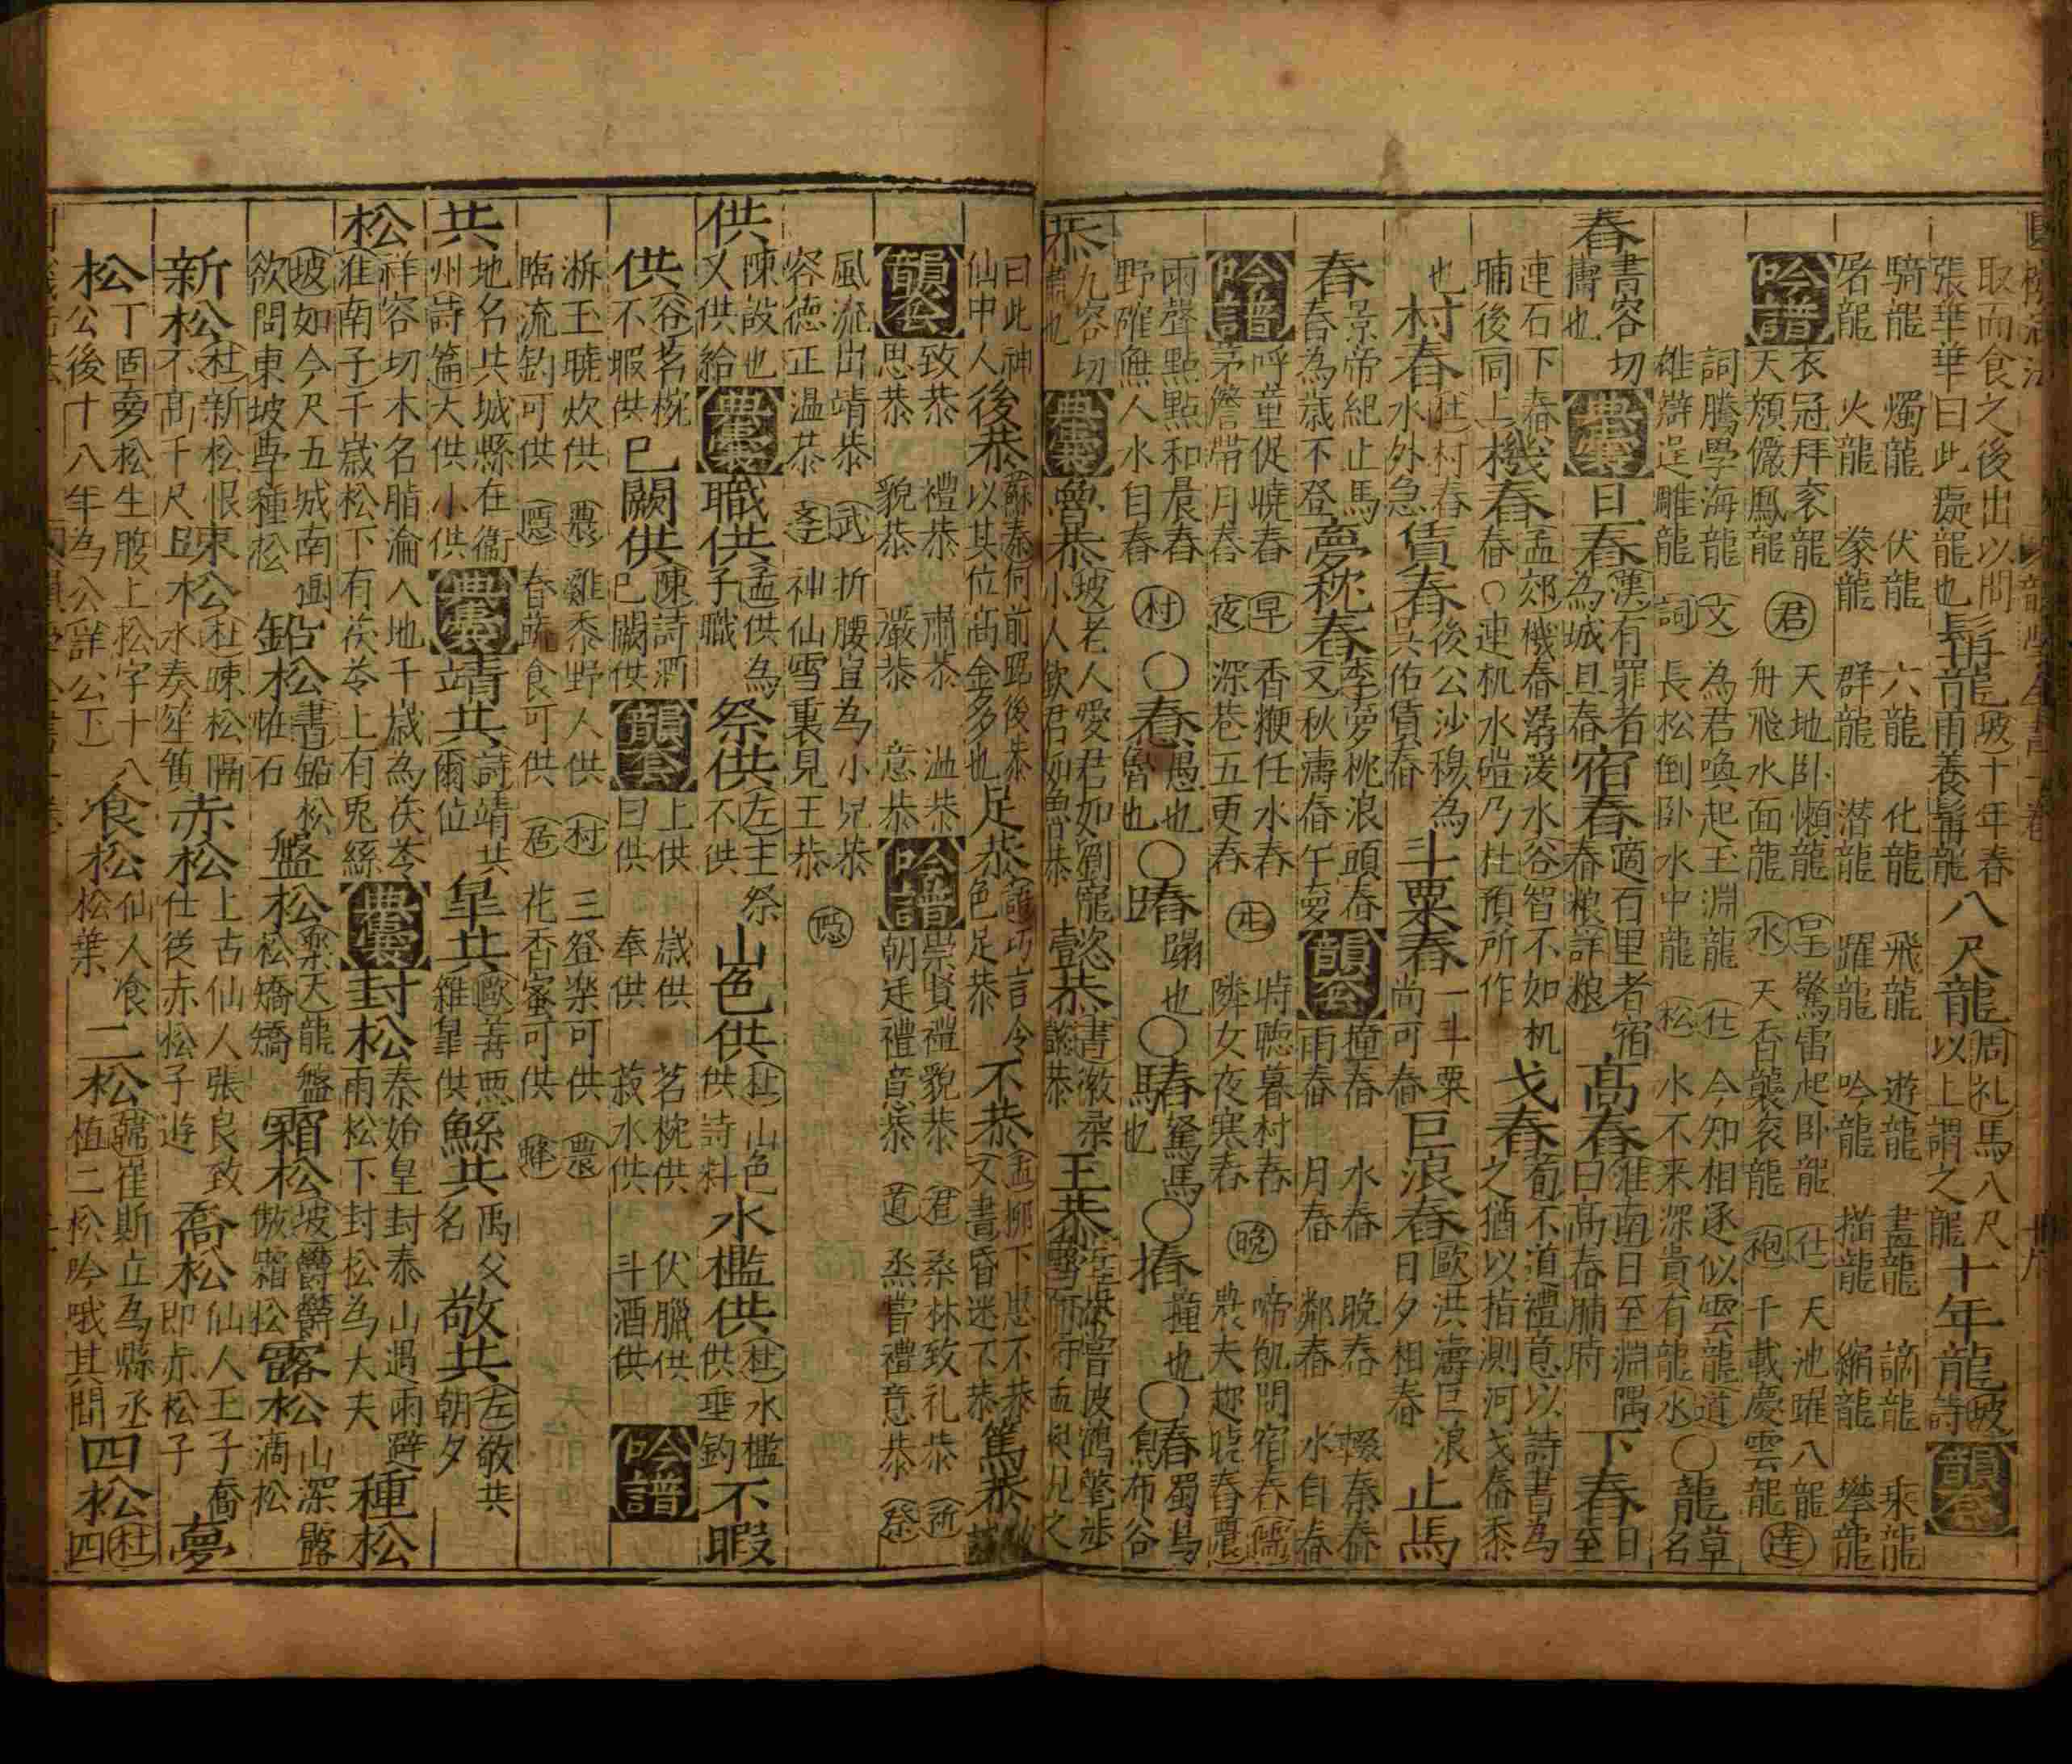 取而食之後出以問
張華華曰此癡龍也髯龍坡十年春雨養髯龍八尺龍周礼馬八尺以上謂之龍十年龍坡詩韻套
騎龍 燭龍 伏龍 六龍 化龍 飛龍 遊龍 畫龍 謫龍 乘龍
屠龍 火龍 豢龍 群龍 潜龍 躍龍 吟龍 描龍 縮龍 攀龍
吟譜 衣冠拜衮龍 君 天地卧懶龍 呈 驚雷起卧龍 仕 天池躍八龍 達
天顏儼鳳龍 舟飛水面龍 水 天香襲衮龍 袍 千載慶雲龍
詞騰學海龍 文 為君喚起玉淵龍 仕 今知相逐似雲龍 道 ○龍草名
雄辯逞雕龍 詞 長松倒卧水中龍 松 水不来深貴有龍 水
舂書容切擣也 典囊 旦舂漢有罪者為城旦舂宿舂適百里者宿舂粮詳粮高舂淮南日至淵隅曰高舂晡時下舂日至
連石下舂晡後同上機舂孟郊機舂潺湲水谷智不如机舂○連机水磑乃杜預所作戈舂荀不道禮意以詩書為之猶以指測河戈舂黍
也村舂杜村舂水外急賃舂後公沙穆為吳佑賃舂斗粟舂一斗粟尚可舂巨浪舂歐洪濤巨浪日夕相舂止馬
舂景帝紀止馬舂為歲不登夢枕舂李夢枕浪頭舂又秋濤舂午夢韻套 撞舂 水舂 晚舂 輟秦舂
雨舂 月舂 鄰舂 水自舂
吟譜 呼童促曉舂 早 香粳任水舂 時聴暮村舂 晚 啼飢問宿舂 儒
茅簷帶月舂 夜 深巷五更舂 隣女夜寒舂 農夫趂曉舂 農
雨聲點點和晨舂 村 ○惷愚也○䐁蹋也○騺駑馬也○摏撞也○鰆蜀鳥布谷
野碓無人水自舂
恭九容切肅也典囊魯恭坡老人愛君如劉寵小人歌君如魯恭壹恭書徽柔懿恭王恭
曰此神仙中人後恭蘇秦何前踞後恭以其位高金多也足恭論巧言令色足恭不恭孟柳下惠不恭文書昏迷不恭篤恭
韻套 致恭 禮恭 肅恭 溢恭 吟譜 崇賢禮貌恭 君 桑林致礼恭 祈
思恭 貌恭 嚴恭 意恭 朝廷禮意恭 道 烝嘗禮意恭 祭
風流出靖恭 武 折腰宜為小兒恭
容德正温恭 神仙雪裏見王恭
供陳設也又供給典囊職供孟供為子職祭供左主祭不供山色供杜山色供詩料水檻供杜水檻供垂釣不暇
供谷茗椀不暇供已闕供陳詩酒已闕供韻套 上供 歲供 茗椀供 伏臘供 吟譜
日供 奉供 菽水供 斗酒供
柝玉曉炊供 農 雞黍野人供 村 三登樂可供 農
臨流釣可供 隠 春蔬食可供 居 花香蜜可供 蜂
共地名共城縣在衞州詩篇大供小供典囊靖共詩靖共爾位皐共歐善惡雜皐供鯀共禹父名敬共左敬共朝夕
松祥容切木名脂淪入地千歲為茯苓淮南子千歲松下有茯苓上有兎絲典囊封松秦始皇封泰山遇雨避雨松下封松為大夫種松
坡如今尺五城南画欲問東坡學種松鉛松書鉛松怪石盤松樂天龍盤松矯矯霜松坡欝欝傲霜松露松山深露滴松
新松杜新松恨不高千尺東松杜踈松隔水奏笙簧赤松上古仙人張良致仕從赤松子遊喬松仙人王子喬即赤松子夢
松丁固夢松生腹上松字十八公後十八年為公詳公下食松仙人飡松葉二松韓崔斯立為縣丞植二松吟哦其間四松杜四